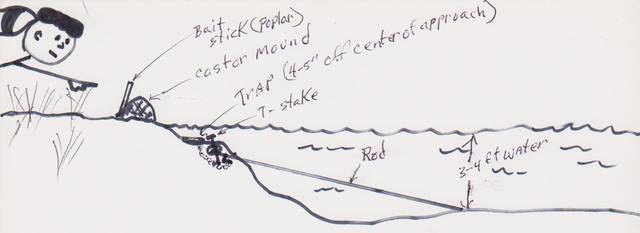 Bait
stick (Poplar)
castor mound
TrAP (4-5" off center of approach)
T-stake
Rod
3-4 ft water